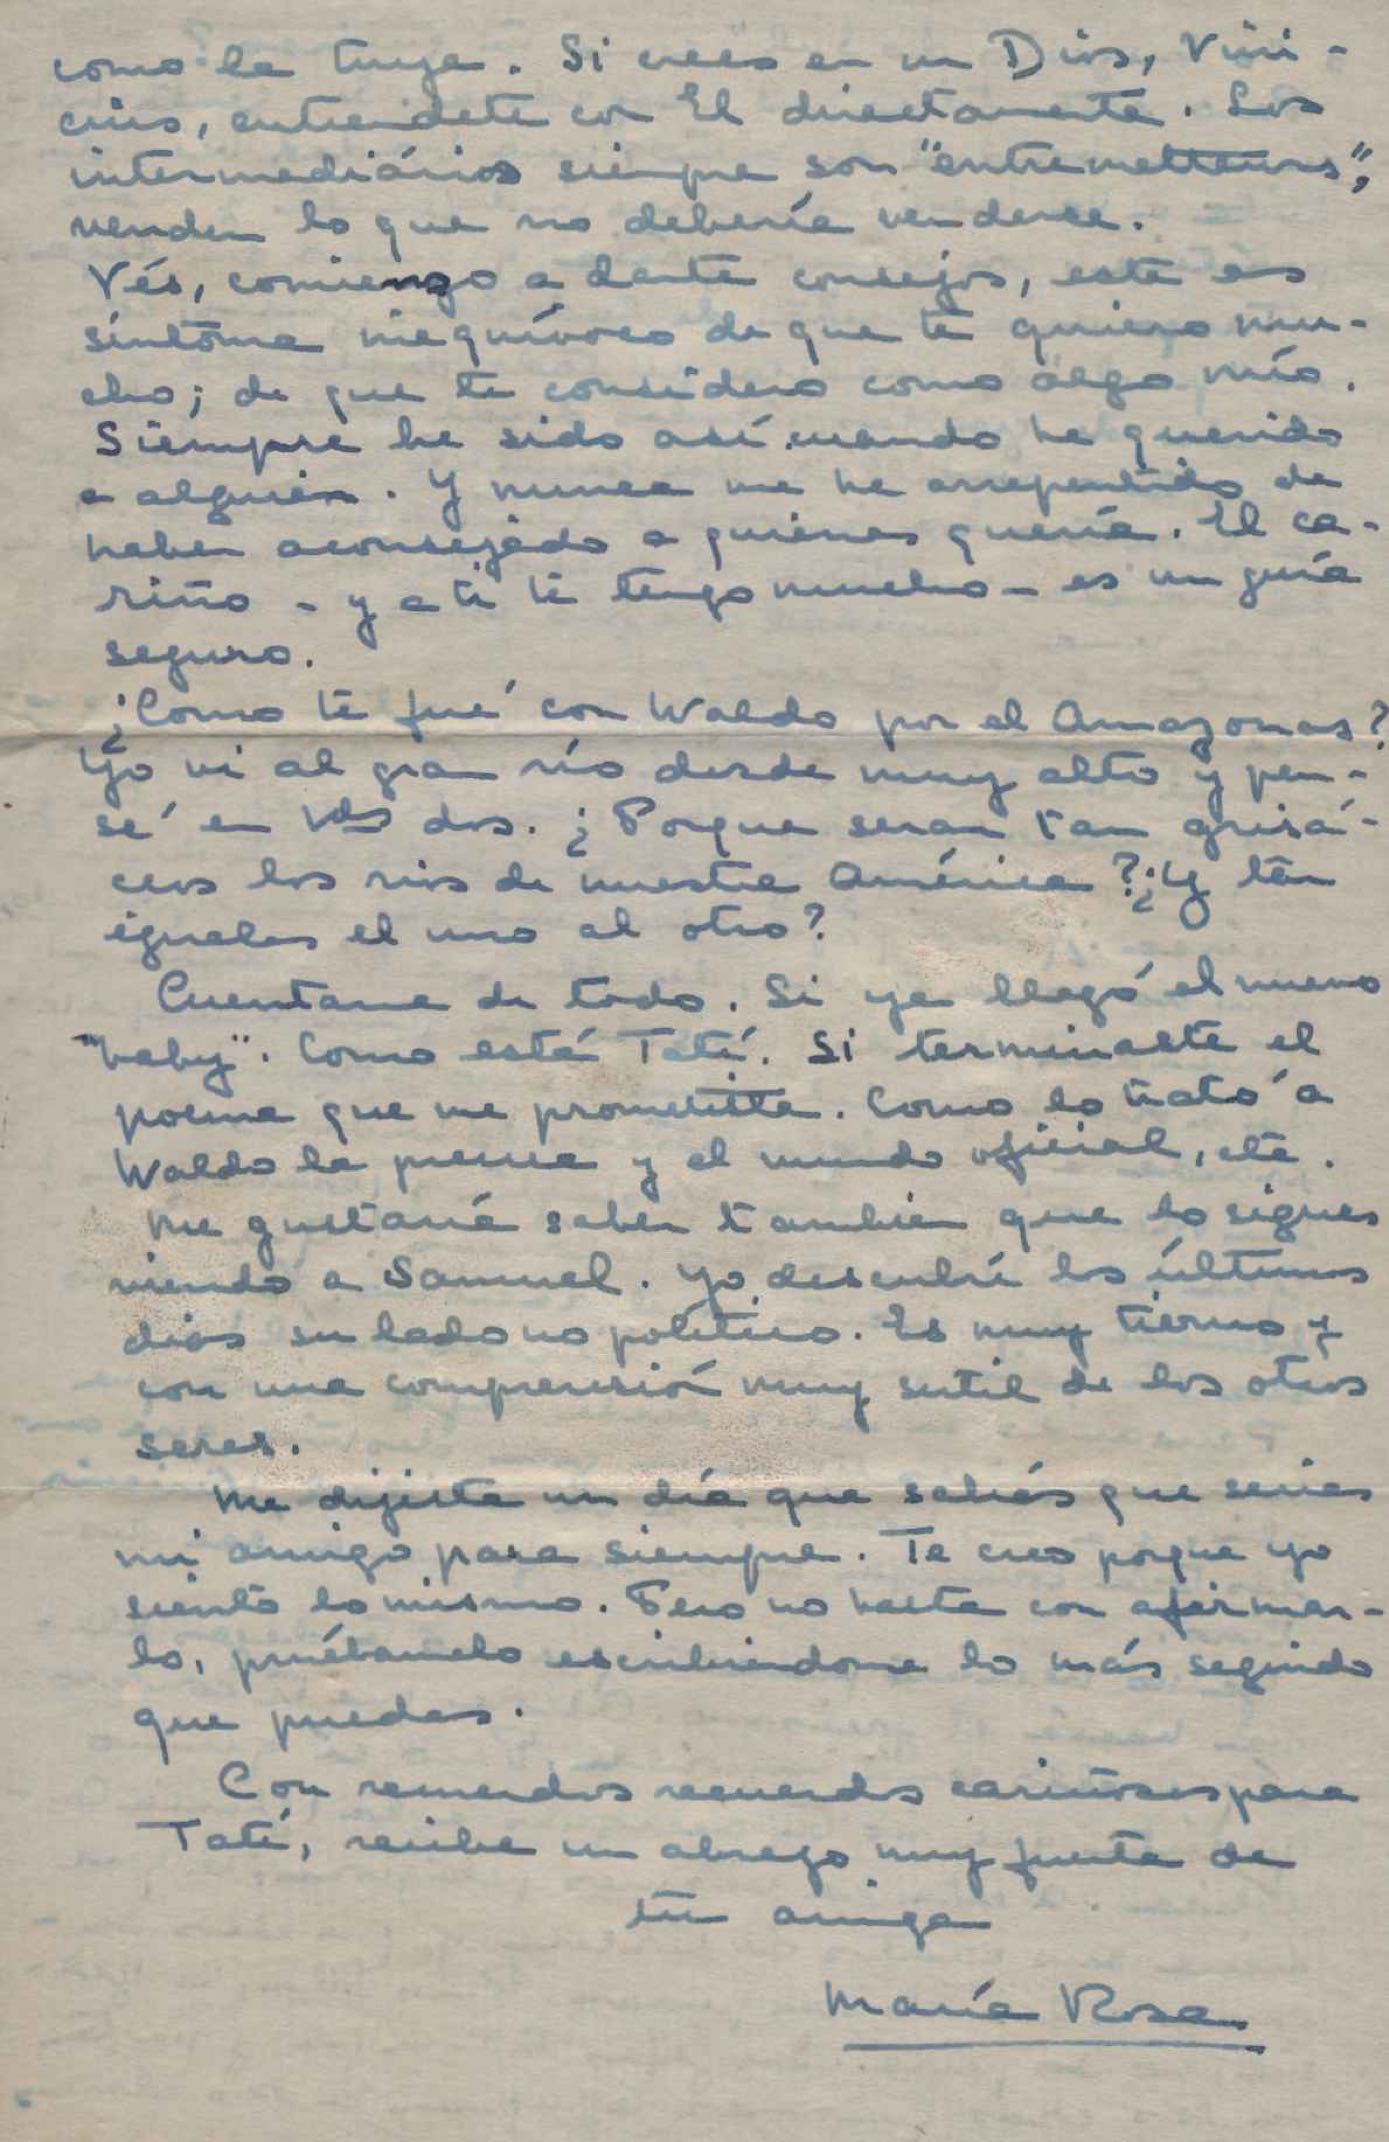 como la tuya. Si crees en un Dios, Vini-
cius, entiendete con El directamente. Los
intermediários siempre son "entremetteurs",
venden lo que no debería venderse.
Vés, comienzo a darte consejos, este es
síntoma inequívoco de que te quiero mu-
cho; de que te considero como algo mío.
Siempre he sido así cuando he querido
a alguien. Y nunca me he arrepentido de
haber aconsejado a quienes quería. El ca-
riño - y a ti te tengo mucho - es un guía
seguro.
¿Como te fué con Waldo por el Amazonas?
Yo vi al gran río desde muy alto y pen-
sé en Vds dos. ¿Porque seran tan grisá-
ceos los rios de nuestra América? ¿Y tan
iguales el uno al otro?
Cuentame de todo. Si ya llegó el nuevo
"baby". Como está Tati. Si terminaste el
poema que me prometiste. Como lo trató a
Waldo la prensa y el mundo oficial, etc.
Me gustaría saber tambien que lo sigues
viendo a Samuel. Yo descubrí los últimos
dias su lado no político. Es muy tierno y
con una comprensión muy sutil de los otros
seres.
Me dijiste un día que sabías que serías
mi amigo para siempre. Te creo porque yo
siento lo mismo. Pero no basta con afirmar-
lo, pruébamelo escribiendome lo más seguido
que puedas.
Con recuerdos recuerdos cariñosos para
Tati, recibe un abrazo muy fuerte de
tu amiga
María Rosa